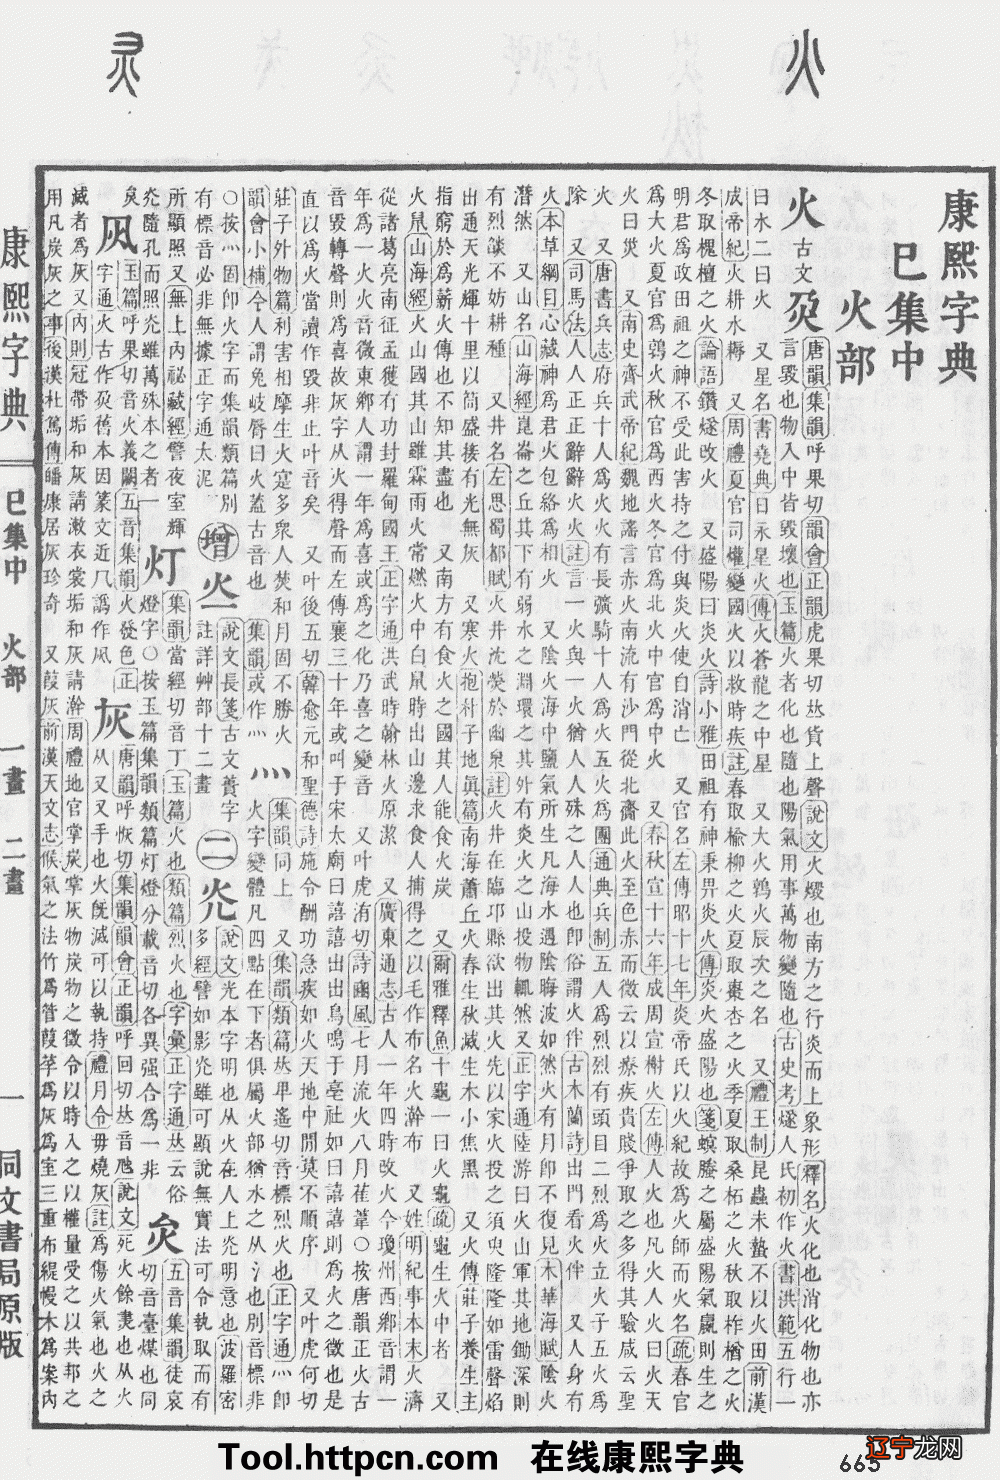 火
𤆍
康熙字典
巳集中
火部
火 古文 𤆄
唐韻集韻呼果切韻會正韻虎果切𠀤貨上聲說文火燬也南方之行炎而上象形釋名火化也消化物也亦
言毀也物入中皆毀壞也玉篇火者化也隨也陽氣用事萬物變隨也古史考燧人氏初作火書洪範五行一
曰水二曰火 又星名書堯典日永星火傳火蒼龍之中星 又大火鶉火辰次之名 又禮王制昆蟲未蟄不以火田前漢
成帝紀火耕水耨 又周禮夏官司爟變國火以救時疾註春取榆柳之火夏取棗杏之火季夏取桑柘之火秋取柞楢之火
冬取槐檀之火論語鑽燧改火 又盛陽曰炎火詩小雅田祖有神秉畀炎火傳炎火盛陽也箋螟螣之屬盛陽氣嬴則生之
明君爲政田祖之神不受此害持之付與炎火使自消亡 又官名左傳昭十七年炎帝氏以火紀故爲火師而火名疏春官
爲大火夏官爲鶉火秋官爲西火冬官爲北火中官爲中火 又春秋宣十六年成周宣榭火左傳人火也凡火人火曰火天
火曰災 又南史齊武帝紀魏地謠言赤火南流有沙門從北齎此火至色赤而微云以療疾貴賤爭取之多得其驗咸云聖
火 又唐書兵志府兵十人爲火火有長彍騎十人爲火五火爲團通典兵制五人爲烈烈有頭目二烈爲火立火子五火爲
隊 又司馬法人人正正辭辭火火註言一火與一火猶人人殊之人人也卽俗謂火伴古木蘭詩出門看火伴 又人身有
火本草綱目心藏神爲君火包絡爲相火 又陰火海中鹽氣所生凡海水遇陰晦波如然火有月卽不復見木華海賦陰火
潛然 又山名山海經崑崙之丘其下有弱水之淵環之其外有炎火之山投物輒然又正字通陸游曰火山軍其地鋤深則
有烈燄不妨耕種 又井名左思蜀都賦火井沈熒於幽泉註火井在臨邛縣欲出其火先以家火投之須臾隆隆如雷聲焰
出通天光輝十里以筒盛接有光無灰 又寒火抱朴子地眞篇南海蕭丘火春生秋滅生木小焦黑 又火傳莊子養生主
指窮於爲薪火傳也不知其盡也 又南方有食火之國其人能食火炭 又爾雅釋魚十龜一曰火龜疏龜生火中者 又
火鼠山海經火山國其山雖霖雨火常燃火中白鼠時出山邊求食人捕得之以毛作布名火澣布 又姓明紀事本末火濟
從諸葛亮南征孟獲有功封羅甸國王正字通洪武時翰林火原潔 又廣東通志古人一年四時改火今瓊州西鄉音謂一
年爲一火火音微東鄉人謂一年爲喜或爲之化乃喜之變音 又叶虎洧切詩豳風七月流火八月萑葦○按唐韻正火古
音毀轉聲則爲喜故灰字从火得聲而左傳襄三十年或叫于宋太廟曰譆譆出出鳥鳴于亳社如曰譆譆則爲火之徵也是
直以爲火當讀作毀非止叶音矣 又叶後五切韓愈元和聖德詩施令酬功急疾如火天地中間莫不順序 又叶虎何切
莊子外物篇利害相摩生火寔多衆人焚和月固不勝火
灬
集韻同上 又集韻類篇𠀤𤰞遙切音標烈火也正字通灬卽
火字變體凡四點在下者俱屬火部猶水之从氵也別音標非
韻會小補今人謂兔岐脣曰火蓋古音也 集韻或作灬
○按灬固卽火字而集韻類篇別
有標音必非無據正字通太泥
增
說文長箋古文蕢字
註詳艸部十二畫
二
灮
說文光本字明也从火在人上灮明意也波羅密
多經譬如影灮雖可顯說無實法可令執取而有
所顯照又無上內祕藏經譬夜室輝
灮隨孔而照灮雖萬殊本之者一
灯
集韻當經切音丁玉篇火也類篇烈火也字彙正字通𠀤云俗
燈字○按玉篇集韻類篇灯燈分載音切各異强合爲一非
灻
五音集韻徒哀
切音臺煤也同
炱
凨
玉篇呼果切音火義闕五音集韻火發色正
字通火古作𤆄舊本因篆文近𠘨譌作凨
灰
唐韻呼恢切集韻韻會正韻呼回切𠀤音虺說文死火餘㶳也从火
从又又手也火旣滅可以執持禮月令毋燒灰註爲傷火氣也火之
滅者爲灰又內則冠帶垢和灰請漱衣裳垢和灰請澣周禮地官掌炭掌灰物炭物之徵令以時入之以權量受之以共邦之
用凡炭灰之事後漢杜篤傳皤康居灰珍奇 又葭灰前漢天文志候氣之法竹爲管葭莩爲灰爲室三重布緹幔木爲案內
康熙字典
巳集中 火部 一畫 二畫
一
同文書局原版
Tool.httpcn.com 在线康熙字典
665
辽宁龙网